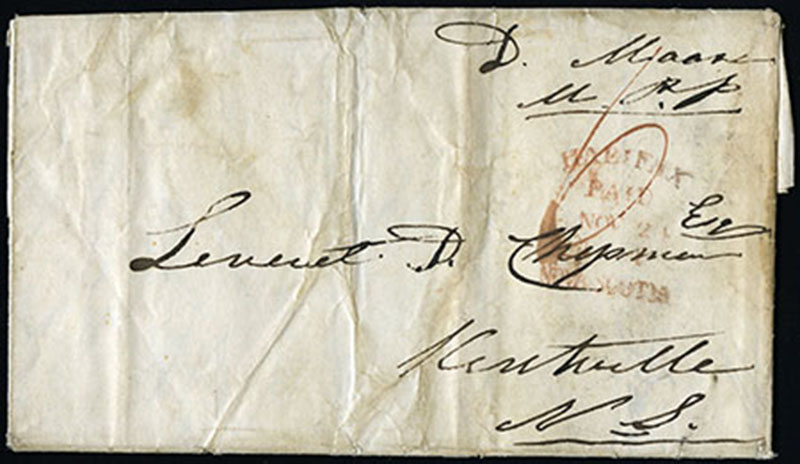 D. Moore
M.P.P
HALIFAX
PAID
NOV 2
Leveret. D. Chipman Esq
Kentville
N S.